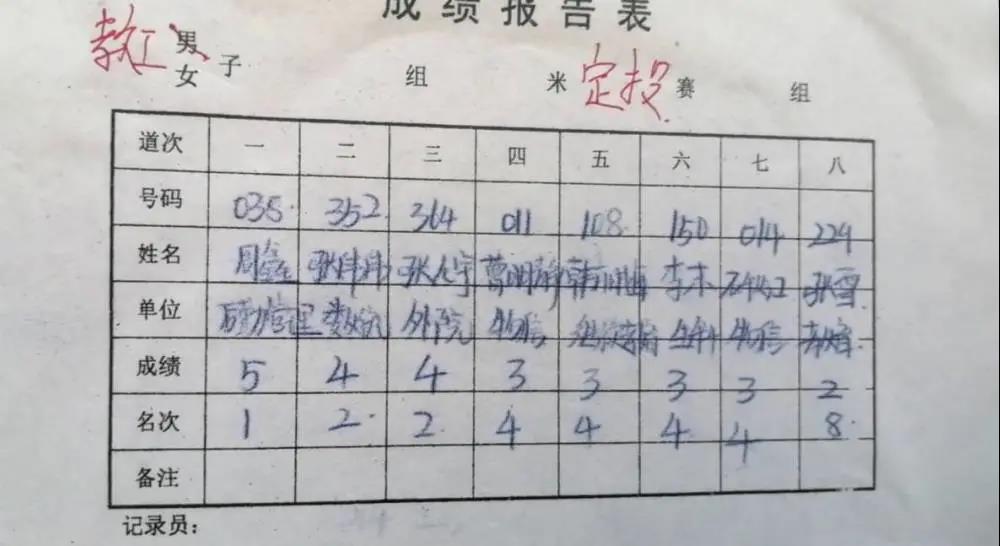 成绩报告表
教工 男女子 组 米 定投 赛 组
道次 一 二 三 四 五 六 七 八
号码 035 352 364 011 108 150 014 229
姓名 周 张伟伟 张 曹明静 李杰 张雪
单位 管理 数 外院 物信 继续教育 生科 物信
成绩 5 4 4 3 3 3 3 2
名次 1 2 2 4 4 4 4 8
备注
记录员：